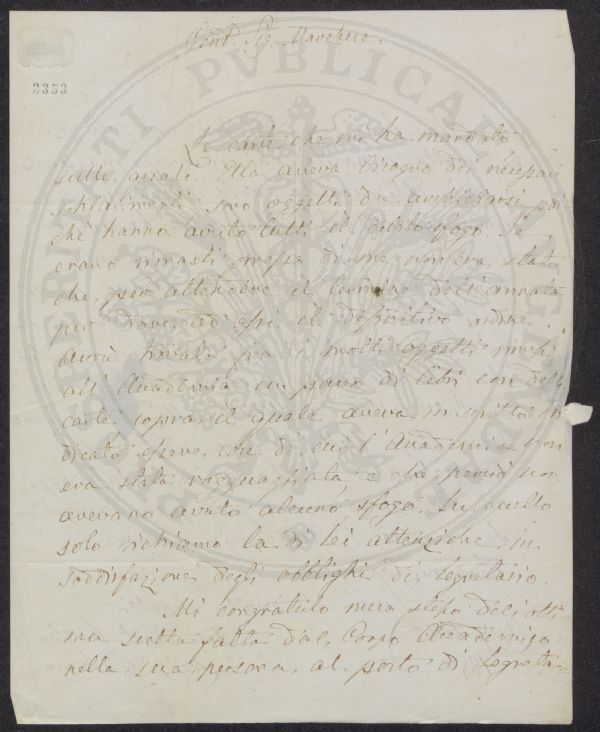 Gent. Sig. Marchese.
2333
Le carte che mi ha mandato
sulle quali Ella aveva bisogno dei necessari
schiarimenti sono oggetti da archiviarsi poi-
chè hanno avuto tutti il debito sfogo. Se
erano rimasti presso di me non era stato
che per attendere il termine dell'annata
per dare ad essi il definitivo ordine.
Avrà trovato fra i molti oggetti rimessi
all'Accademia un pacco di libri con delle
carte sopra il quale aveva in scritto in-
dicato essere cose di cui l'Accademia non
era stata ragguagliata e che perciò non
avevano avuto alcuno sfogo. Su quello
solo richiamo la di lei attenzione in
soddisfazione degli obblighi di Segretario.
Mi congratulo meco stesso dell'otti-
ma scelta fatta dal Corpo Accademico
nella sua persona al posto di Segreta-
PUBLICAE